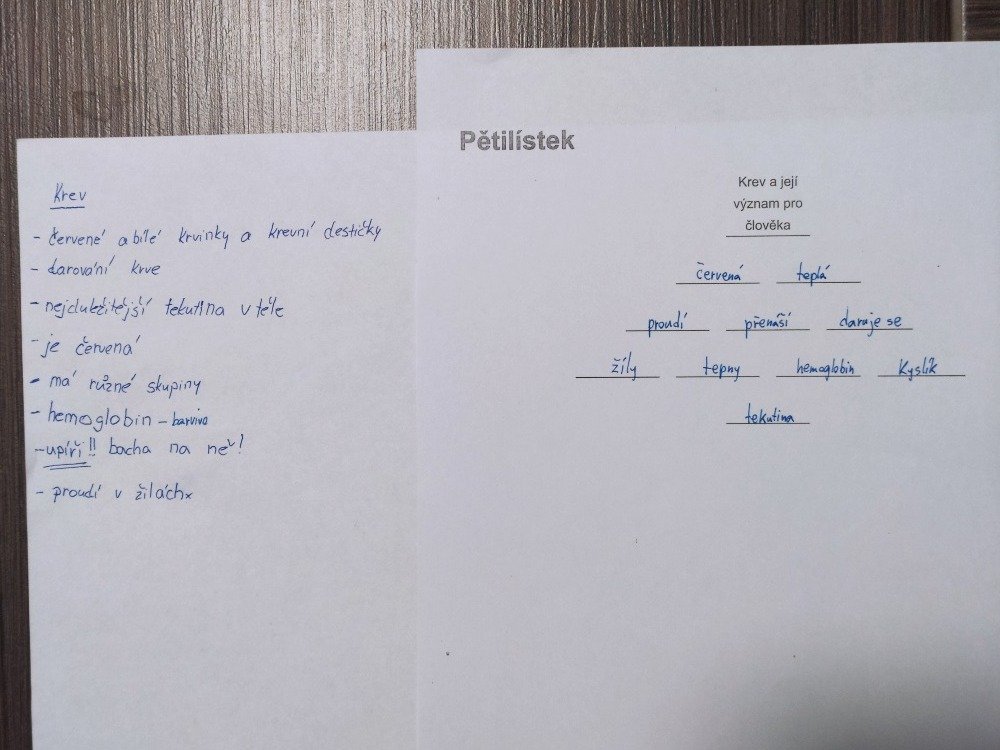 Krev
- červené a bílé krvinky a krevní destičky
- darování krve
- nejduležitější tekutina v těle
- je červená
- má různé skupiny
- hemoglobin - barvivo
- upíři!! bacha na ně!
- proudí v žilách
Pětilístek
Krev a její
význam pro
člověka
červená teplá
proudí přenáší daruje se
žíly tepny hemoglobin Kyslík
tekutina